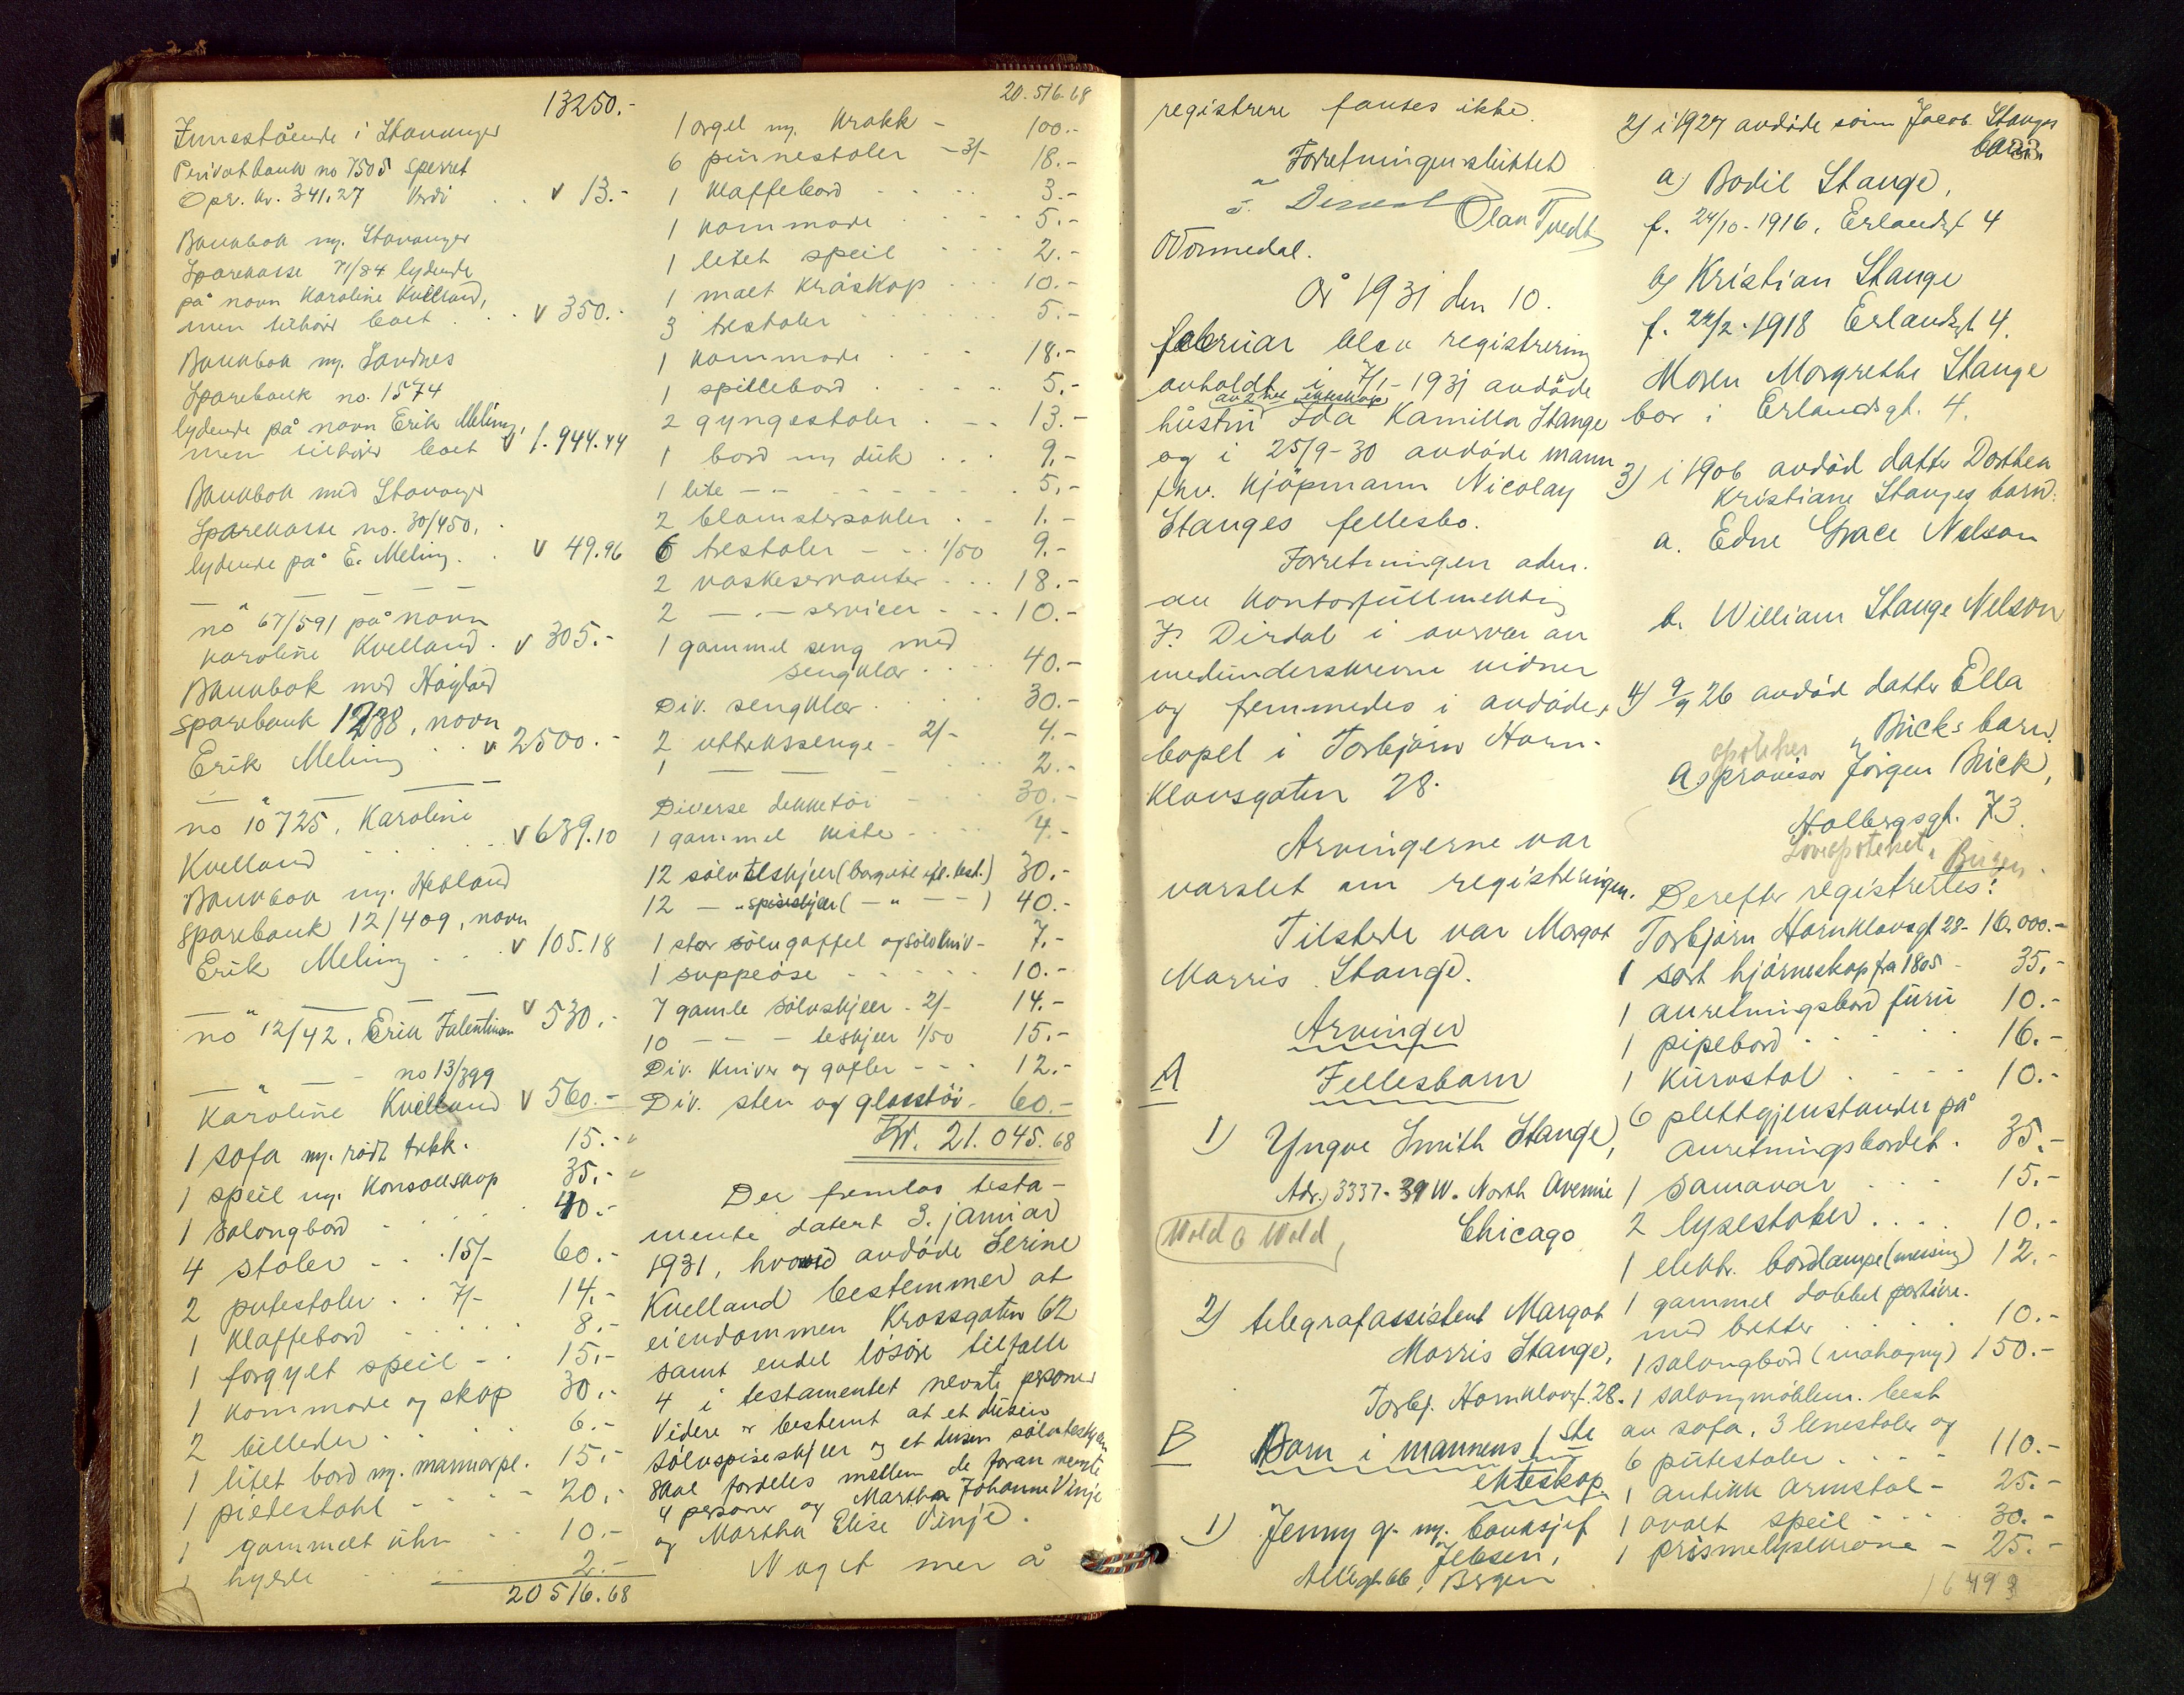 13250.-
Innestående i Stavanger
Privatbank no 7505 sperret
Opr. kr. 341.27 Verdi . . v 13.-
Bankbok m/. Stavanger
Sparekasse 71/84 lydende
på navn Karoline Kvelland,
men tilhører boet . . . v 350.-
Bankbok m/. Sandnes
Sparebank no. 1574
lydende på navn Erik Meling,
men tilhører boet v 1.944.44
Bankbok med Stavanger
Sparekasse no. 30/450,
lydende på E. Meling . . v 49.96
— " — —
no 67/591 på navn
Karoline Kvelland . v 305.-
Bankbok med Høyland
sparebank 1238, navn
Erik Meling . . v 2500.-
— " — —
no 10725, Karoline
Kvelland . . . . v 639.10
Bankbok m/. Hetland
sparebank 12/409, navn
Erik Meling . . . v 105.18
— " — —
no 12/42, Erik Talentinsen v 530.-
— " — — no 13/399
Karoline Kvelland v 560.-
1 sofa m/. rødt trekk. 15.-
1 speil m/. konsollskap 35.-
1 salongbord . . . 40.-
4 stoler . . . 15/- 60.-
2 putestoler . . 7/- 14.-
1 klaffebord . . . . 8.-
1 forgylt speil - . 15.-
1 kommode og skap 30.-
2 billeder . . . . 6.-
1 litet bord m/. marmorpl. 15.-
1 pidestahl - - - - 20.-
1 gammelt uhr . . 10.-
1 hylde . . . 2.-
20516.68
20.516.68
1 orgel m/. krakk - 100.-
6 pinnestoler - 3/- 18.-
1 klaffebord - - - - 3.-
1 kommode . . . . 5.-
1 litet speil . . . 2.-
1 malt kråskap . . . 10.-
3 trestoler . . . . . 5.-
1 kommode . . . 18.-
1 spillebord . . . . 5.-
2 gyngestoler . - - 13.-
1 bord m/ duk . . . 9.-
1 lite - - - - - - - 5.-
2 blomstersøkler . - 1.-
6 trestoler - - . 1/50 9.-
2 vaskeservanter . . . 18.-
2 — . — servicer - - . 10.-
1 gammel seng med
sengklær . . . . 40.-
Div. sengklær . . . . 30.-
2 uttrekssenge - 2/- 4.-
1 — — - . . . 2.-
Diverse dekketøi - . . 30.-
1 gammel kiste - - - . 4.-
12 sølvteskjeer (borgutit efl. test.) 30.-
12 — " spiseskjeer ( — " — — ) 40.-
1 stor sølvgaffel og sølvkniv - 7.-
1 suppeøse - - - - - 10.-
7 gamle sølvskjeer - 2/- 14.-
10 — — — teskjeer 1/50 15.-
Div. kniver og gafler - - - 12.-
Div. sten og glasstøi - 60.-
Kr. 21.045.68
Der fremlas testa-
mente datert 3. januar
1931, hvorved avdøde Serine
Kvelland bestemmer at
eiendommen Krossgaten 62
samt endel løsøre tilfalle
4 i testamentet nevnte personer
Videre er bestemt at et dusin
sølvspiseskjeer og et dusin sølvteskjeer
skal fordeles mellem de foran nevnte
4 personer og Martha Johanne Vinje
og Martha Elise Vinje.
Noget mer å
registrere fantes ikke.
Forretningen sluttet
J. Dirdal Olav Tvedt
O Tormedal.
År 1931 den 10.
februar blev registrering
avholdt i 7/1-1931 avdøde
av 2net ekteskap
hustru Ida Kamilla Stange
og i 25/9-30 avdøde mann
fhv. kjøpmann Nicolay
Stanges fellesbo.
Forretningen adm.
av kontorfullmektig
J. Dirdal i nærvær av
medunderskrevne vidner
og fremmedes i avdødes
bopel i Torbjørn Horn-
klovsgaten 28.
Arvingerne var
varslet om registreringen.
Tilstede var Margot
Morris Stange.
Arvinger
A Fellesbarn
1) Yngve Smith Stange,
Adr. 3337-39 W. North Avenue
Chicago
Wold & Wold,
2) telegrafassistent Margot
Morris Stange,
Torbj. Hornklovsgt. 28.
B Barn i mannens 1ste
ekteskap
1) Jenny g. m/. banksjef
Jebsen,
Allégt. 66, Bergen
2) i 1927 avdøde sønn Jacob Stanges
barn:
a) Bodil Stange,
f. 24/10-1916, Erlandsgt 4
b) Kristian Stange
f. 22/2-1918 Erlandsgt 4.
Moren Margrethe Stange
bor i Erlandsgt. 4.
3) i 1906 avdød datter Dorthea
Kristiane Stanges barn:
a. Edne Grace Nelson
b. William Stange Nelson
4) 9/9 26 avdød datter Ella
Bucks barn.
apoteker
a) provisor Jørgen Buck,
Holbergsgt. 73
Løveapoteket, Bergen.
Derefter registrertes:
Torbjørn Hornklovsgt 28 - 16.000.-
1 sort hjørneskap fra 1805 - 35.-
1 anretningsbord furu 10.-
1 pipebord . . . . 16.-
1 kurvstol . . . . 10.-
6 plettgjenstander på
anretningsbordet . 35.-
1 samovar . . . . 15.-
2 lysestaker . . . . 10.-
1 elektr. bordlampe (messing) 12.-
1 gammel dobbel portiere.
med bretter . . . . 10.-
1 salongbord (mahogny) 150.-
1 salongmøblem. best
av sofa, 3 lenestoler og
6 putestoler . . . . 110.-
1 antikk armstol - 25.-
1 ovalt speil - - - 30.-
1 prismelysekrone - 25.-
16493